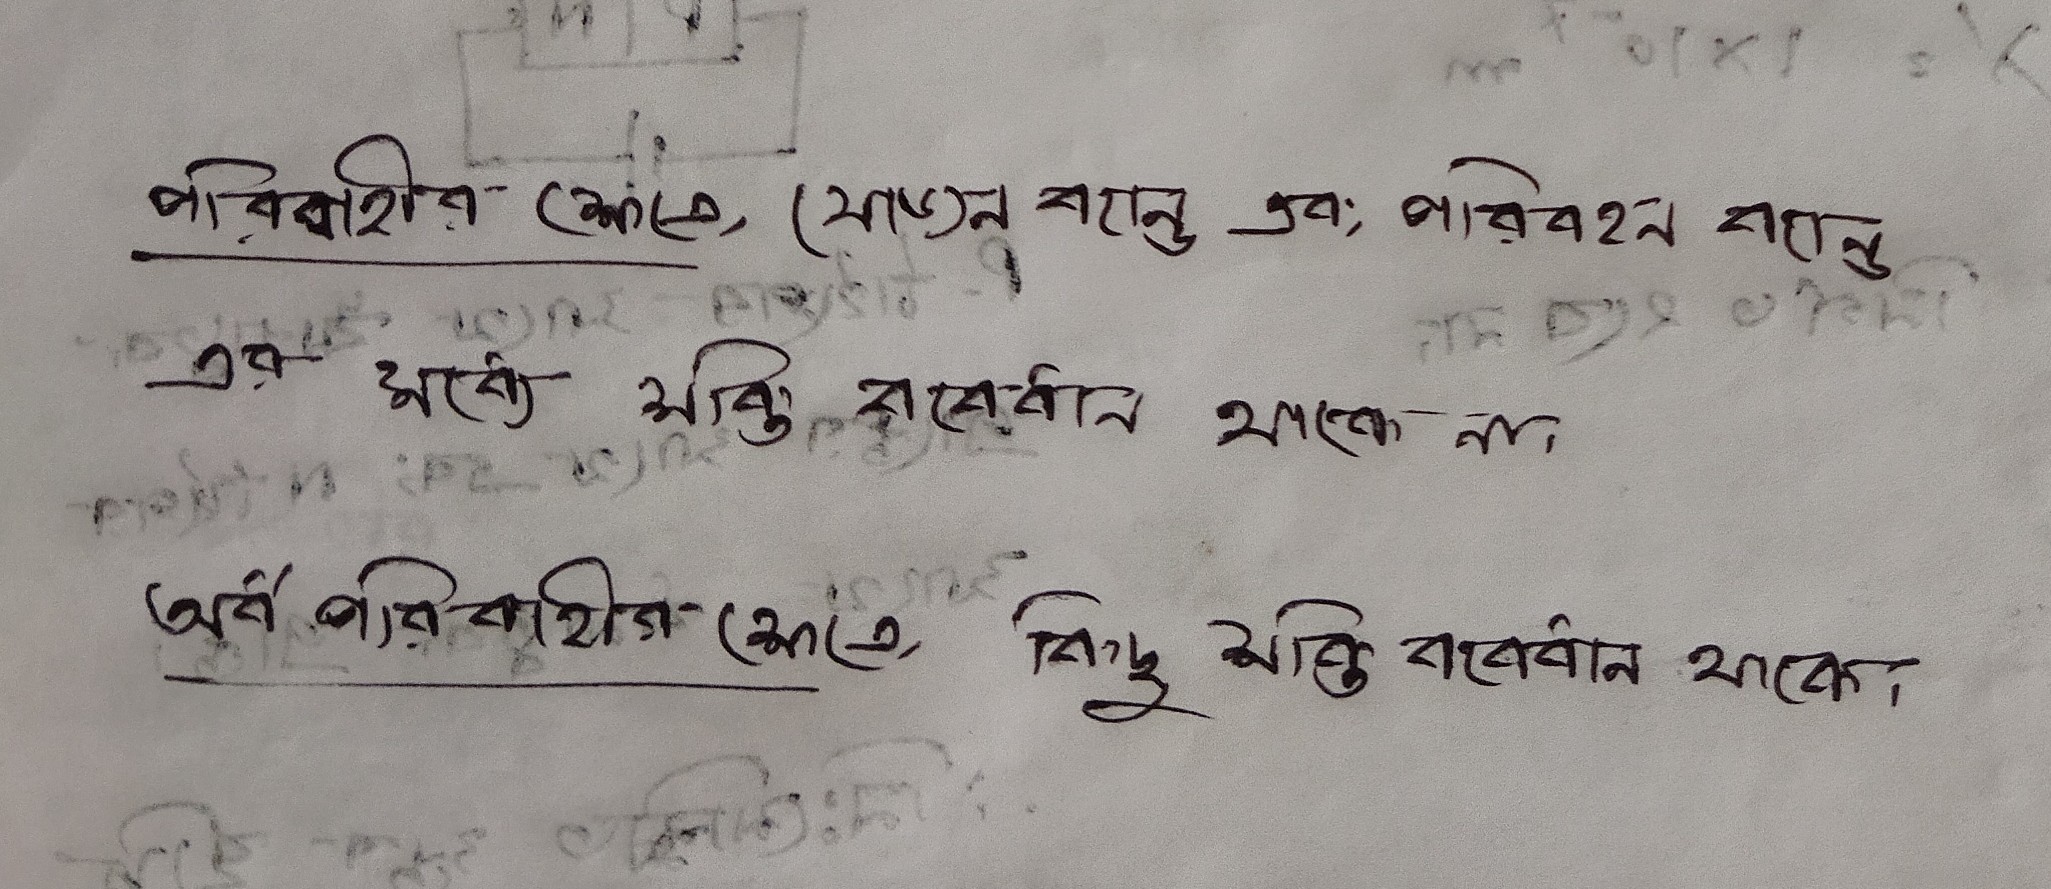 পরিবাহীর ক্ষেত্রে, যোজন ব্যান্ড এবং পরিবহন ব্যান্ড
এর মধ্যে শক্তি ব্যবধান থাকে না।
অর্ধ পরিবাহীর ক্ষেত্রে, কিছু শক্তি ব্যবধান থাকে।